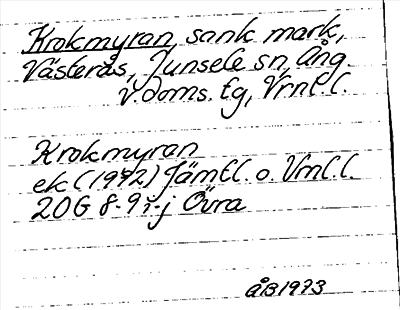 Krokmyran, sank mark,
Västerås, Junsele sn, Ång.
v. doms. tg, Vrnl. l.
Krokmyran
ek (1972) Jämtl. o. Vrnl. l.
20G 8-9 i-j Övra
ÅB 1973